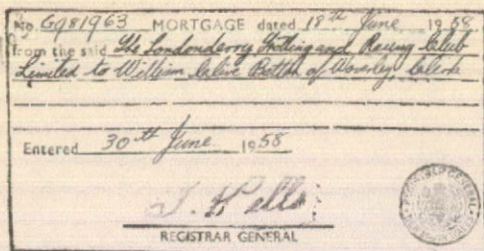 No. G981963 MORTGAGE dated 18th June 1958
from the said The Londonderry Trotting and Racing Club
Limited to William Clive of Waverley Clerk
Entered 30th June 1958
REGISTRAR GENERAL
REGISTRAR GENERAL